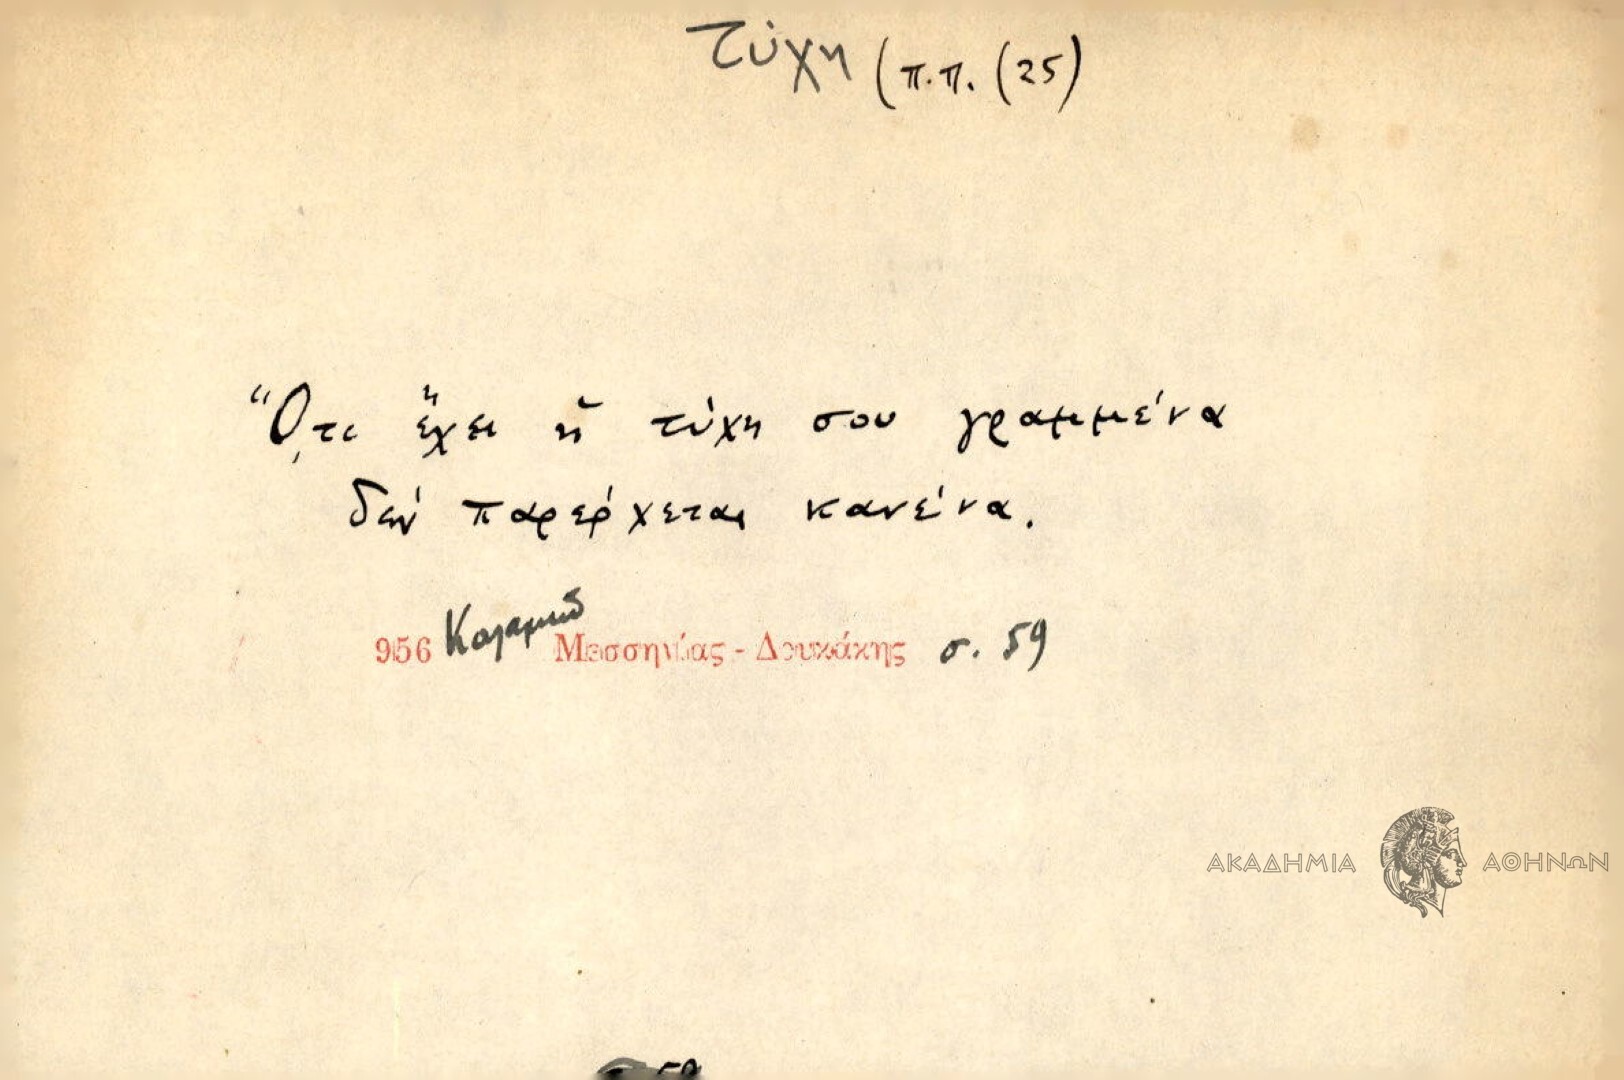 τύχη (π.π. (25)
Ὅ,τι ἔχει ἡ τύχη σου γραμμένα
δέν παρέρχεται κανένα.
956 Καλαμῶν Μεσσηνίας - Δουκάκης σ. 59
ΑΚΑΔΗΜΙΑ ΑΘΗΝΩΝ